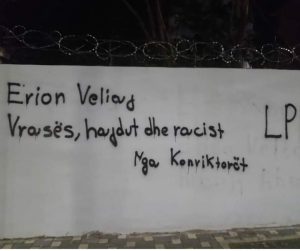 Erion Veliaj
Vrasës, hajdut dhe racist
LP
Nga Konviktorët